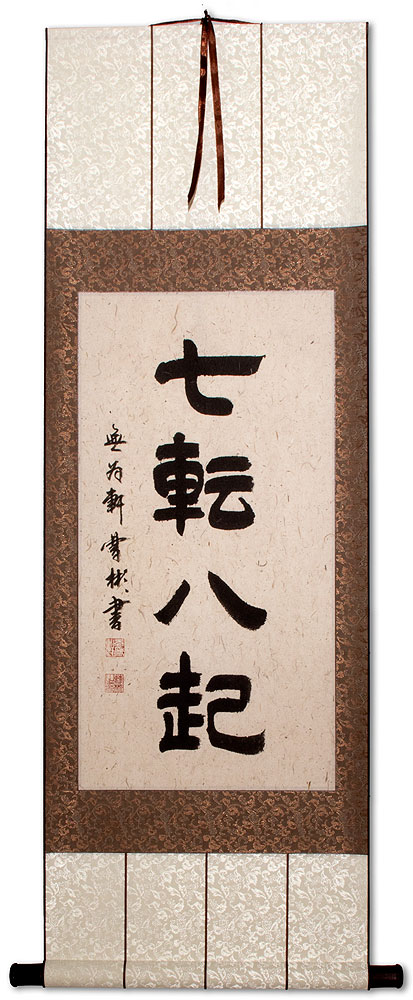 七転八起
無為軒 雲彬書